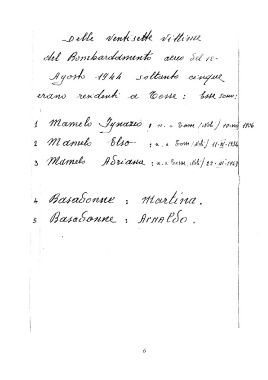 Delle Ventisette Vittime
del Bombardamento aereo del 10-
Agosto 1944 soltanto cinque
erano residenti a Tosse : Esse sono:
1 Mamelo Ignazio : n. a
2 Mamelo Elso : n. a
3 Mamelo Adriana : n. a
4 Basadonne : Martina.
5 Basadonne : Arnaldo.
6